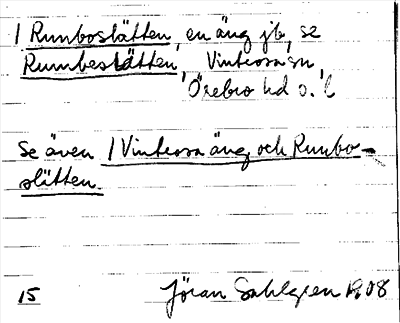 / Runboslätten, en äng jb, se
Rumbeslätten, Vintrosa sn
Örebro hd o. l
Se även / Vintrosa äng och Runbo-
slätten.
15 Jöran Sahlgren 1908